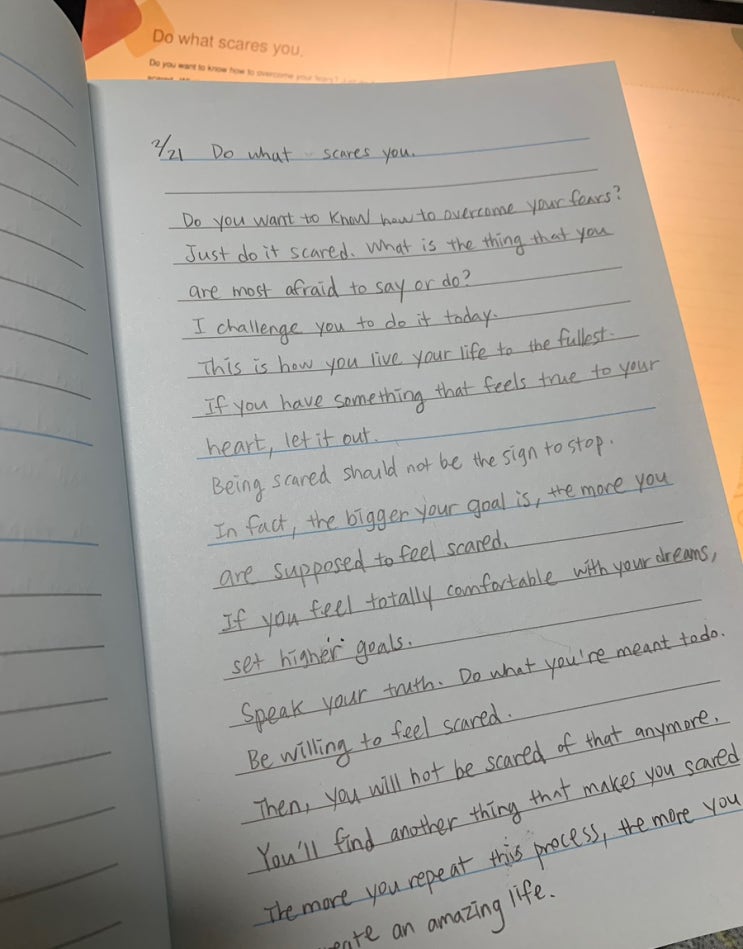 Do what scares you.
Do you want to know how to overcome your fears?
2/21 Do what scares you.
Do you want to know how to overcome your fears?
Just do it scared. What is the thing that you
are most afraid to say or do?
I challenge you to do it today.
This is how you live your life to the fullest.
If you have something that feels true to your
heart, let it out.
Being scared should not be the sign to stop.
In fact, the bigger your goal is, the more you
are supposed to feel scared.
If you feel totally comfortable with your dreams,
set higher goals.
Speak your truth. Do what you're meant to do.
Be willing to feel scared.
Then, you will not be scared of that anymore.
You'll find another thing that makes you scared
The more you repeat this process, the more you
an amazing life.